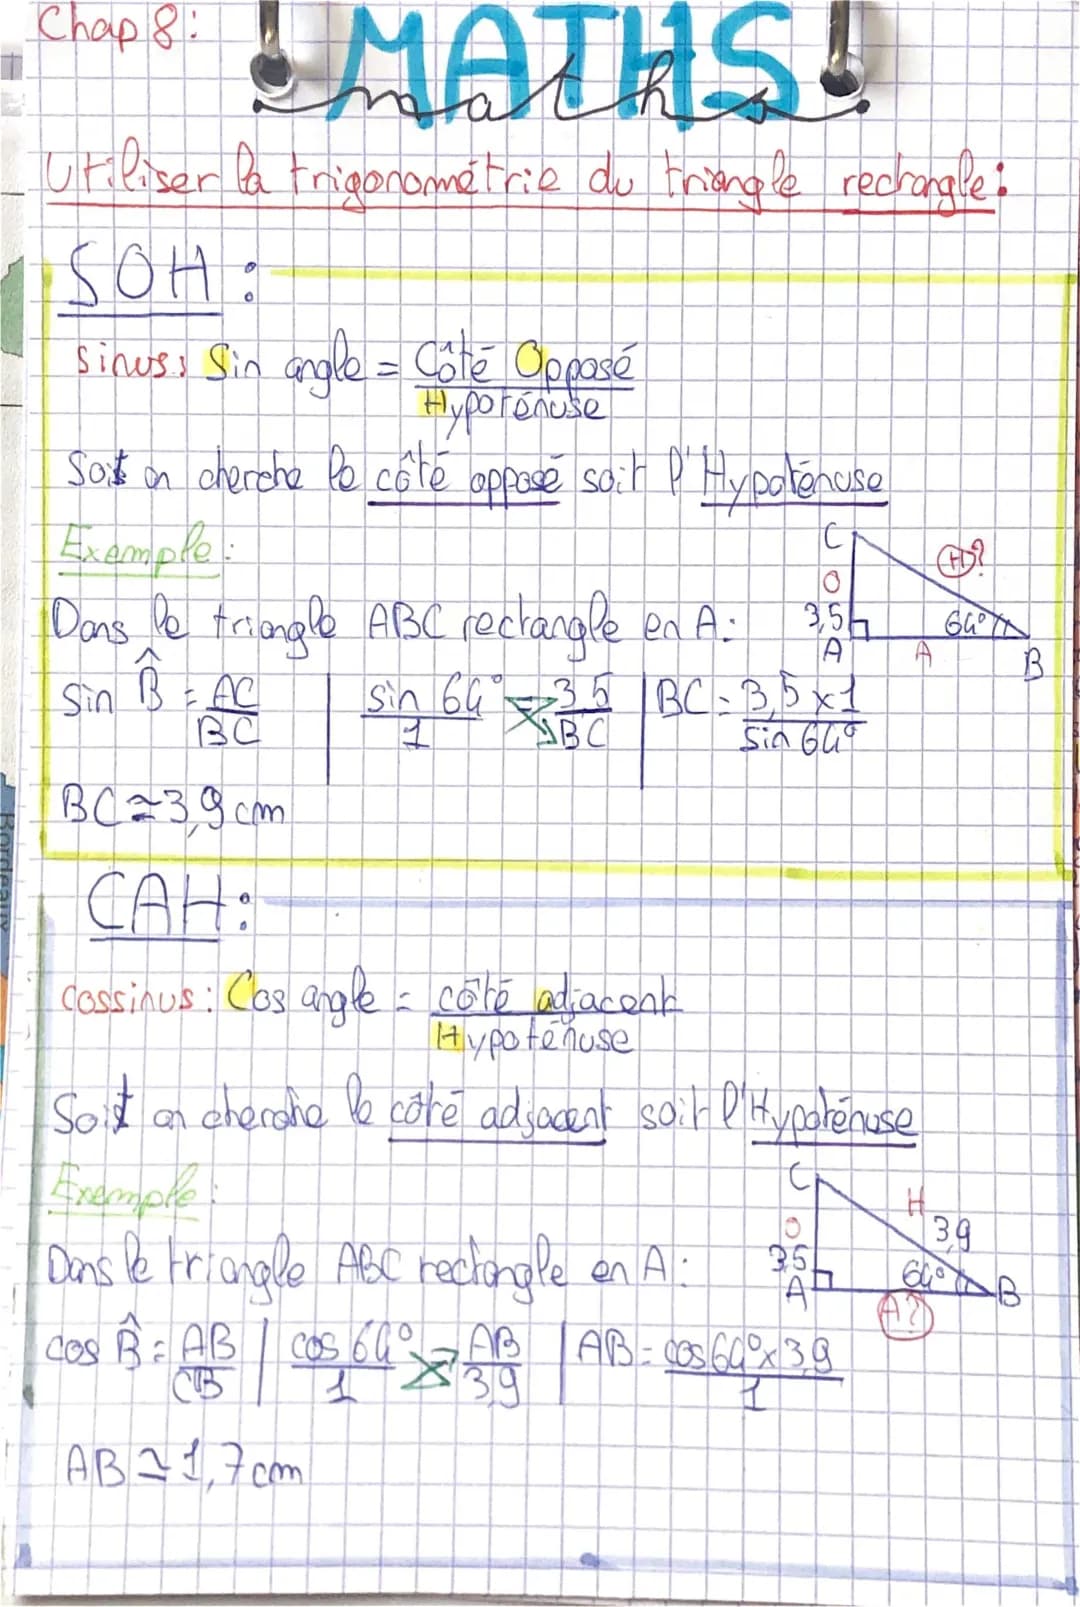 Chap 8:
MATHS
maths
Utiliser la trigonométrie du triangle rectangle:
SOH:
sinus: Sin angle = Côté Opposé
Hypoténuse
Soit on cherche le côté opposé soit l'Hypoténuse
Exemple:
C
H?
O
3,5
64°
A
A
B
Dans le triangle ABC rectangle en A:
sin B̂ = AC / BC | sin 64° / 1 = 3,5 / BC | BC = 3,5 x 1 / sin 64°
BC ≃ 3,9 cm
CAH:
cossinus: Cos angle = côté adjacent
Hypoténuse
Soit on cherche le côté adjacent soit l'Hypoténuse
Exemple:
C
H
3,9
O
3,5
64°
A
B
A?
Dans le triangle ABC rectangle en A:
cos B̂ = AB / CB | cos 64° / 1 = AB / 3,9 | AB = cos 64° x 3,9 / 1
AB ≃ 1,7 cm
Bordeaux